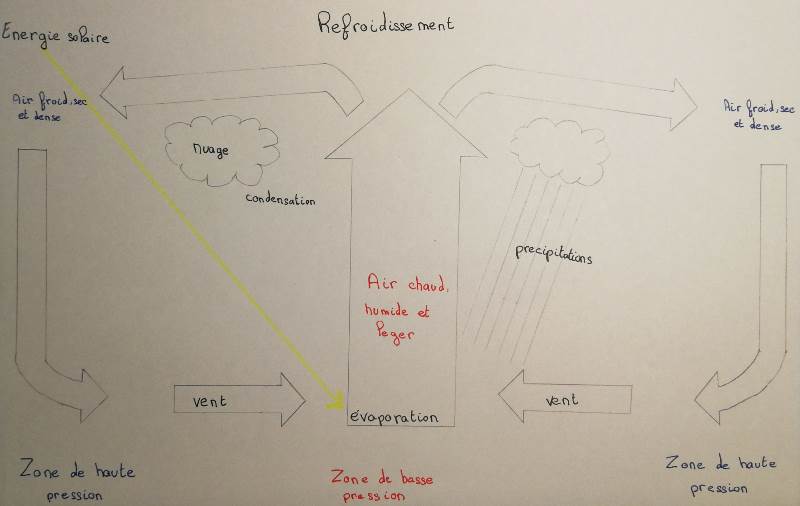 Refroidissement
Energie solaire
Air froid, sec
et dense
Air froid, sec
et dense
nuage
condensation
precipitations
Air chaud,
humide et
leger
vent
évaporation
vent
Zone de haute
pression
Zone de basse
pression
Zone de haute
pression